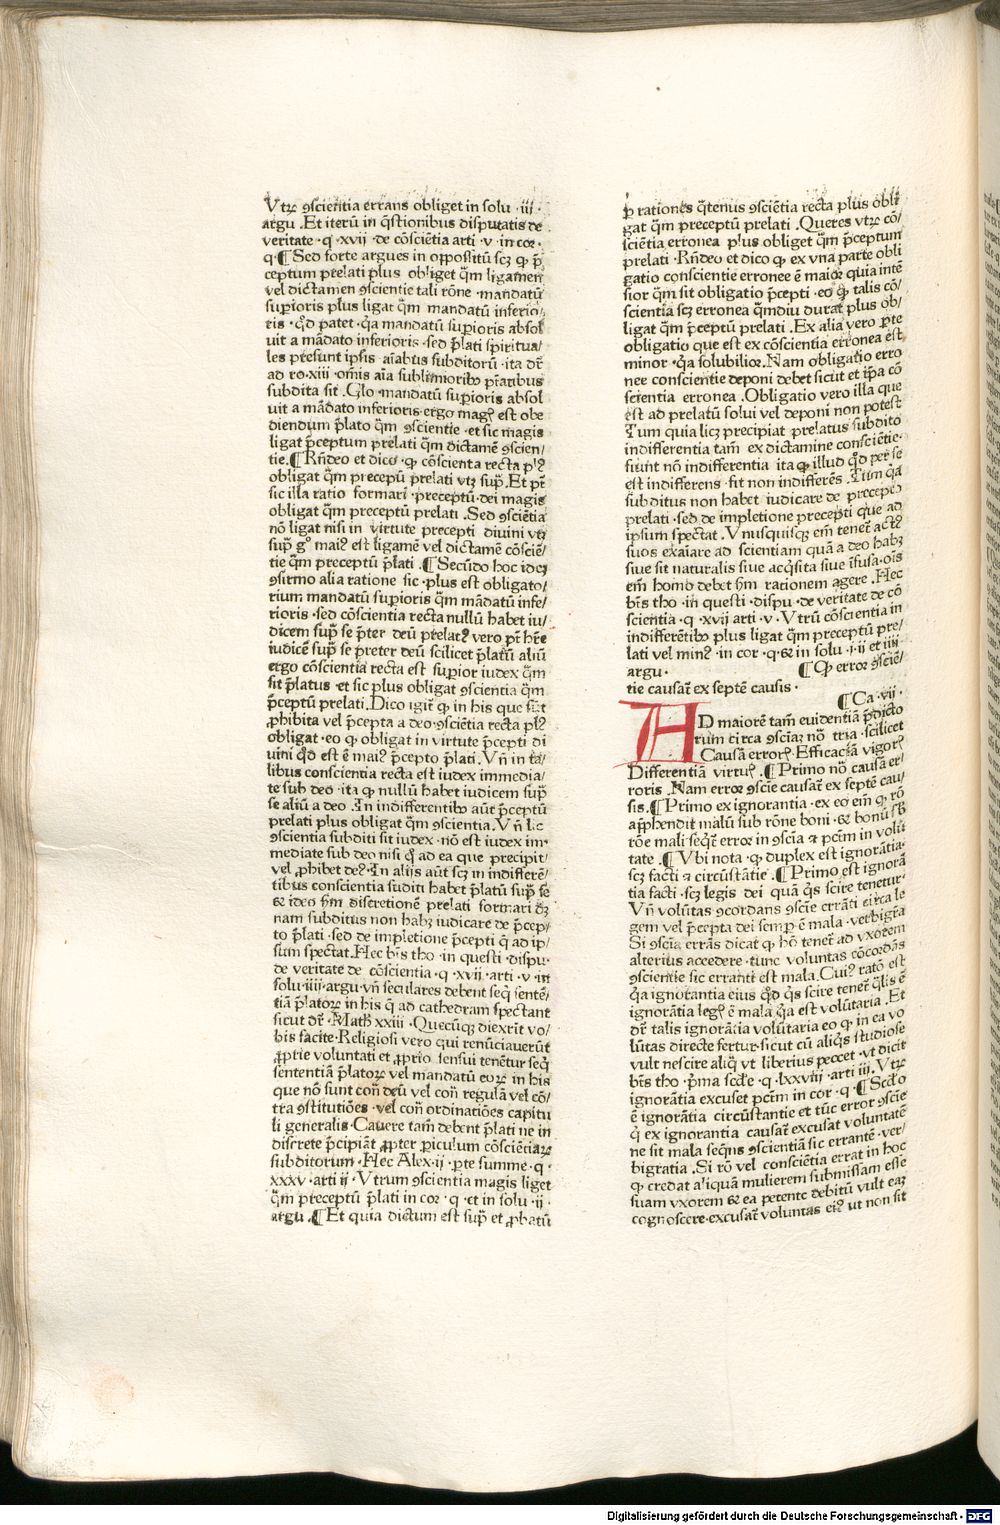 Vtrꝝ ꝯscientia errans obliget in solu · iij ·
argu . Et iterū in q̄stionibus disputatis de
veritate · q · xvij · de cōsciētia arti · v · in cor ·
q · ¶ Sed forte argues in oppositū scꝫ ꝙ p̄
ceptum prelati plus obliget q̄m ligamen
vel dictamen ꝯscientie tali rōne · mandatū
superioris plus ligat q̄m mandatū inferio/
ris · qđ patet · q̄a mandatū superioris absol
uit a mādato inferioris · sed p̄lati spiritua/
les presunt ipsis aīabus subditorū · ita dr̄
ad ro · xiii · om̄is aīa sublimioribꝰ pr̄atibus
subdita sit . Glo · mandatū superioris absol
uit a mādato inferioris · ergo magꝭ est obe
diendum p̄lato q̄m ꝯscientie · et sic magis
ligat p̄ceptum prelati q̄m dictamē ꝯscien/
tie . ¶ Rn̄deo et dico · ꝙ cōscienta recta plꝰ
obligat q̄m precepū prelati vtꝫ supͣ . Et pt̄
sic illa ratio formari · preceptū · dei magis
obligat q̄m preceptū prelati . Sed ꝯsciētia
nō ligat nisi in virtute precepti diuini vtꝫ
supͣ gͦ maiꝰ est ligamē vel dictamē cōsciē/
tie q̄m preceptū p̄lati . ¶ Secūdo hoc ideꝫ
ꝯfirmo alia ratione sic · plus est obligato/
rium mandatū superioris q̄m mādatū infe/
rioris · sed cōscientia recta nullū habet iu/
dicem supͣ se p̄ter deū prelatꝰ vero pt̄ hr̄e
iudicē supͣ se preter deū scilicet p̄latū aliū
ergo cōscientia recta est superior iudex q̄m
sit p̄latus · et sic plus obligat ꝯscientia q̄m
p̄ceptū prelati . Dico igit̄ ꝙ in his que sūt
ꝓhibita vel p̄cepta a deo · ꝯsciētia recta plꝰ
obligat · eo ꝙ obligat in virtute p̄cepti di
uini qđ est ē maiꝰ p̄cepto p̄lati . Vn̄ in ta/
libus conscientia recta est iudex immedia/
te sub deo · ita ꝙ nullū habet iudicem supͣ
se aliū a deo . In indifferentibꝰ aūt p̄ceptū
prelati plus obligat q̄m ꝯscientia . Vn̄ lic
ꝯscientia subditi sit iudex · nō est iudex im·
mediate sub deo nisi qͦ ad ea que precipit/
vel ꝓhibet deꝰ . In alijs aūt scꝫ in indifferē/
tibus conscientia suditi habet p̄latū supͣ se
⁊ ideo ẜm discretionem prelati formari dꝫ
nam subditus non habꝫ iudicare de p̄cep/
to p̄lati · sed de impletione p̄cepti q̄ ad ip/
sum spectat . Hec btīs tho · in questi · dispu ·
de veritate de cōscientia · q · xvij · arti · v · in
solu · iiij · argu · vn̄ seculares debent seq̄ sentē/
tiā p̄latorꝝ in his q̄ ad cathedram spectant
sicut dr̄ · Math xxiii · Quecūqꝫ dixerīt vo/
bis facite · Religiosi vero qui renūciauerūt
ꝓprie voluntati et ꝓprio sensui tenētur seq̄
sententiā p̄latorꝝ vel mandatū eorꝝ in his
que nō sunt con̄ deū vel con̄ regulā vel cō/
tra ꝯstitutiōes · vel con̄ ordinatiōes capitu
li generalis · Cauere tam̄ debent p̄lati ne in
discrete p̄cipiāt ꝓpter periculum cōsciētiarꝝ
subditorum · Hec Alex · ij · p̱te summe · q ·
xxxv · arti ij · Vtrum ꝯscientia magis liget
q̄m preceptū p̄lati in cor · q · et in solu · ij ·
argu . ¶ Et quia dictum est supͣ et ꝓbatū
ꝑ rationes q̄tenus ꝯsciētia recta plus obli
gat q̄m preceptū prelati . Queres vtrꝝ cō/
sciētia erronea plus obliget q̄m p̄ceptum
prelati · Rn̄deo et dico ꝙ ex vna parte obli
gatio conscientie erronee ē maior quia intē
sior q̄m sit obligatio p̄cepti · eo ꝙ talis cō/
scientia scꝫ erronea q̄mdiu durat plus ob/
ligat q̄m p̄ceptū prelati . Ex alia vero ꝑte
obligatio que est ex cōscientia erronea est
minor · q̄a solubilior . Nam obligatio erro
nee conscientie deponi debet sicut et ip̄a cō
scientia erronea . Obligatio vero illa que
est ad prelatū solui vel deponi non potest
Tum quia licꝫ precipiat prelatus subdito
indifferentia tam̄ ex dictamine conscietie ·
fiunt nō indifferentia ita ꝙ illud qđ per se
est indifferens · fit non indifferēs . Tum q̄a
subditus non habet iudicare de precepto
prelati · sed de impletione precepti que ad
ipsum spectat . Vnusquisqꝫ em̄ tenet̄ actꝰ
suos exaiare ad scientiam quā a deo habꝫ
siue sit naturalis siue acq̄sita siue īfusa · oīs
em̄ homo debet ẜm rationem agere . Hec
btīs tho · in questi · dispu · de veritate de cō
scientia · q · xvij arti · v · Vtrū cōscientia in
indifferētibꝰ plus ligat q̄m preceptū pre/
lati vel minꝰ · in cor · q · ⁊ in solu · i · ij et iiij
argu · ¶ Ꝙ error ꝯsciē/
tie causat̄ ex septē causis ·
¶ Ca · vij ·
AD maiorē tam̄ euidentiā p̄dicto
rum circa ꝯsciaꝫ nō tria · scilicet
Causā errorꝭ . Efficaciā vigorꝭ
Differentiā virtuꝭ . ¶ Primo nō causā er/
roris . Nam error ꝯscie causat̄ ex septē cau/
sis . ¶ Primo ex ignorantia · ex eo em̄ ꝙ rō
app̄hendit malū sub rōne boni · ⁊ bonū sb̄
rōe mali seq̄t̄ error in ꝯscia ⁊ pctm̄ in volū
tate . ¶ Vbi nota · ꝙ duplex est ignorātia ·
scꝫ facti ⁊ circūstātie . ¶ Primo est ignorā
tia facti · scꝫ legis dei quā q̄s scire tenetur ·
Vn̄ volūtas ꝯcordans ꝯscie errāti circa le
gem vel p̄cepta dei semꝑ ē mala · verbigr̄a
Si ꝯscia errās dicat ꝙ hō tenet̄ ad vxorem
alterius accedere · tunc voluntas cōcordās
ꝯscientie sic erranti est mala . Cuiꝰ ratō est
q̄a ignorantia eius qđ q̄s scire tenet̄ q̄lis ē
ignorātia legꝭ ē mala q̄a est volūtaria . Et
dr̄ talis ignorātia volūtaria eo ꝙ in ea vo
lūtas directe fertur · sicut cū aliq̄s studiose
vult nescire aliq̄ vt liberius peccet · vt dicit
btīs tho · p̄ma scd̄e · q · lxxviij · arti iij . Vtrꝝ
ignorātia excuset pctm̄ in cor · q · ¶ Scd̄o
ē ignorātia circūstantie et tūc error ꝯscie
q̄ ex ignorantia causat̄ excusat voluntatē
ne sit mala seq̄ns ꝯscientiā sic errantē · ver/
bigratia . Si rō vel consciētia errat in hoc
ꝙ credat aliquā mulierem submissam esse
suam vxorem ⁊ ea petente debitū vult eaꝫ
cognoscere · excusat̄ voluntas eiꝰ ut non sit
Digitalisierung gefördert durch die Deutsche Forschungsgemeinschaft - DFG